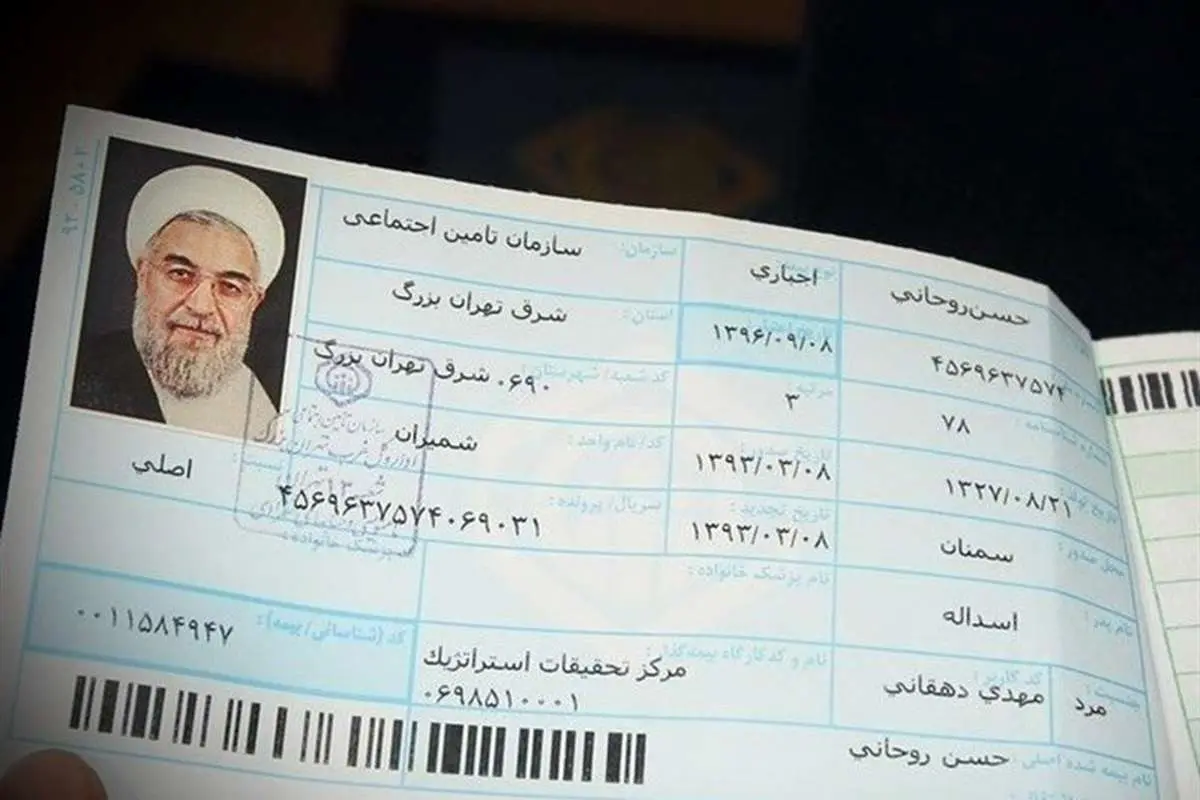 سازمان: سازمان تامین اجتماعی
استان: شرق تهران بزرگ
کد شعبه/ شهرستان: ۰۶۹۰ شرق تهران بزرگ
کد/ نام واحد: شمیران
سریال/ پرونده: ۴۵۶۹۶۳۷۵۷۴۰۶۹۰۳۱
نسبت: اصلي
اجباري
۱۳۹۶/۰۹/۰۸
مرتبه: ۳
تاریخ صدور: ۱۳۹۳/۰۳/۰۸
تاریخ تجدید: ۱۳۹۳/۰۳/۰۸
حسن‌روحاني
۴۵۶۹۶۳۷۵۷۴
شماره شناسنامه: ۷۸
تاریخ تولد: ۱۳۲۷/۰۸/۲۱
محل صدور: سمنان
نام پدر: اسداله
جنسیت: مرد
کد کاربر: مهدي دهقاني
نام پزشک خانواده:
نام و کد کارگاه بیمه‌گذار:
مرکز تحقیقات استراتژیك
۰۶۹۸۵۱۰۰۰۱
کد (شناسائی/ بیمه): ۰۰۱۱۵۸۴۹۴۷
نام بیمه شده اصلی: حسن روحاني
۹۲۰۵۸۰۲
سازمان تامین اجتماعی